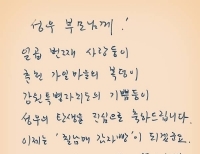 성우 부모님께!
일곱 번째 사랑둥이
춘천 가일마을의 복덩이
강원특별자치도의 기쁨둥이
성우의 탄생을 진심으로 축하드립니다.
이제는 '칠남매 감자빵'이 되겠군요.